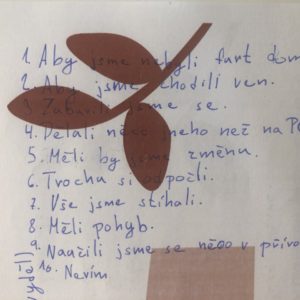 1. Aby jsme nebyli furt dom
2. Aby jsme chodili ven.
3. Zabavili jsme se.
4. Dělali něco jneho než na Po
5. Měli by jsme změnu.
6. Trochu si odpočli.
7. Vše jsme stíhali.
8. Měli pohyb.
9. Naučili jsme se něco v příro
10. Nevím.